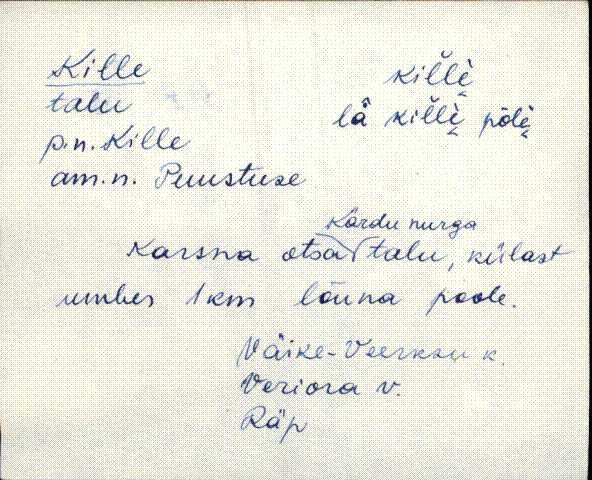 Kille
kil̆l̀e̬
talu
lä kil̆l̀e̬ põl̀e̬
p.n. Kille
am.n. Puustuse
Kärdu nurga
Karsna otsa talu, külast
umbes 1 km lõuna poole.
Väike-Veerksu k.
Veriora v.
Räp